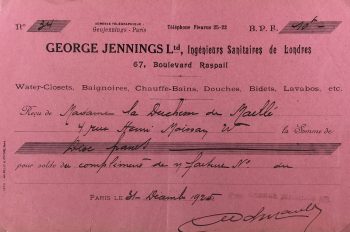 No 34
ADRESSE TÉLÉGRAPHIQUE :
Geojennings - Paris
Téléphone Fleurus 25-22
B. P. F. 10
GEORGE JENNINGS Ltd, Ingénieurs Sanitaires de Londres
67, Boulevard Raspail
Water-Closets, Baignoires, Chauffe-Bains, Douches, Bidets, Lavabos, etc.
Reçu de Madame la Duchesse de Maillé
4 rue Henri Moissan
la Somme de
Dix francs
pour solde du complément de n/ facture No du
PARIS LE 31 Décemb 1925